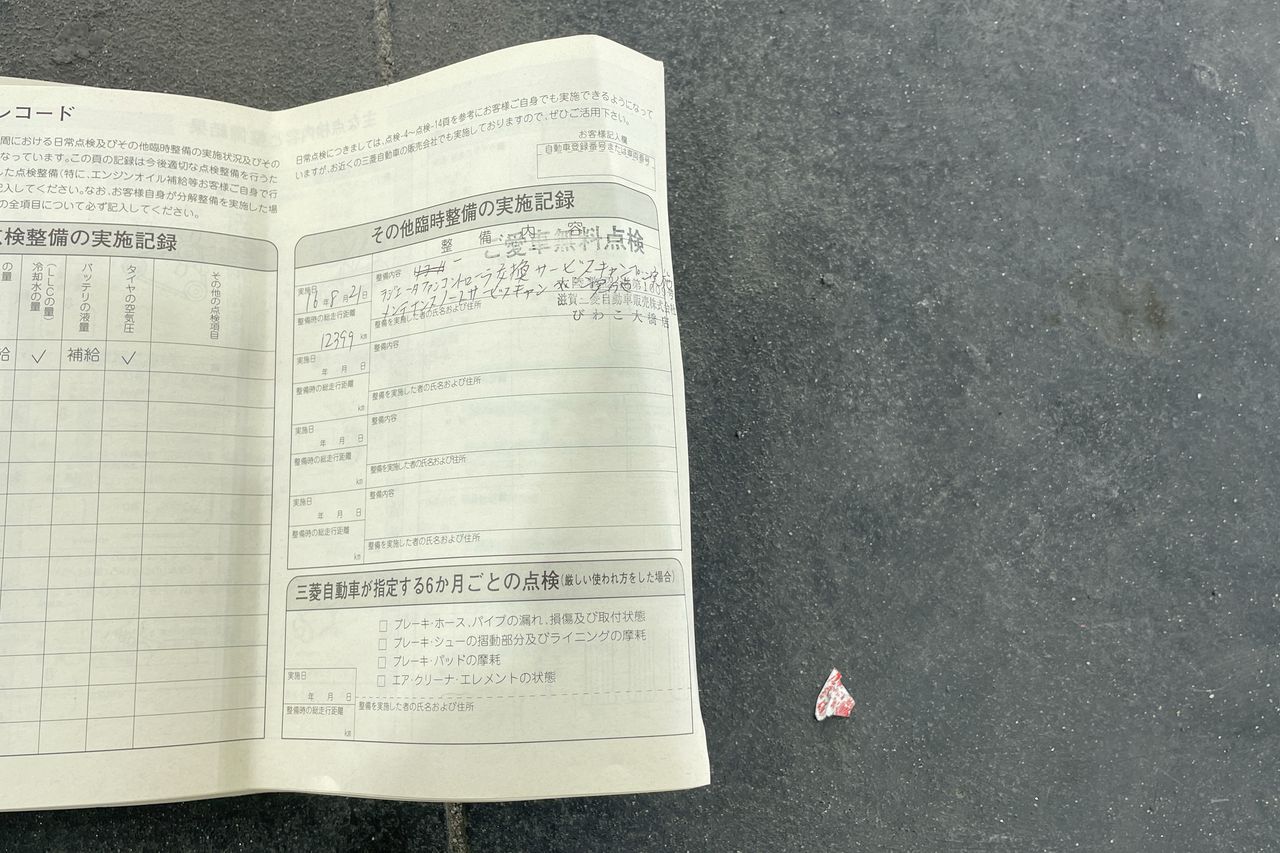 レコード
間における日常点検及びその他臨時整備の実施状況及びその
なっています。この頁の記録は今後適切な点検整備を行うた
した点検整備(特に、エンジンオイル補給等お客様ご自身で行
記入してください。なお、お客様自身が分解整備を実施した場
の全項目について必ず記入してください。
点検整備の実施記録
の量
(LLCの量)
冷却水の量
バッテリの液量
タイヤの空気圧
その他の点検項目
給 ✓ 補給 ✓
日常点検につきましては、点検-4~点検-14頁を参考にお客様ご自身でも実施できるようになって
いますが、お近くの三菱自動車の販売会社でも実施しておりますので、ぜひご活用下さい。
お客様記入欄
自動車登録番号または車両番号
その他臨時整備の実施記録
整備内容
ご愛車無料点検
実施日
16年8月21日
整備時の総走行距離
12399 km
整備内容
ラジエータファンコントローラ交換サービスキャンペーン
サービスキャン
整備を実施した者の氏名および住所
滋賀三菱自動車販売株式会社
びわこ大橋店
実施日
年 月 日
整備時の総走行距離
km
整備内容
整備を実施した者の氏名および住所
実施日
年 月 日
整備時の総走行距離
km
整備内容
整備を実施した者の氏名および住所
実施日
年 月 日
整備時の総走行距離
km
整備内容
整備を実施した者の氏名および住所
三菱自動車が指定する6か月ごとの点検(厳しい使われ方をした場合)
□ ブレーキ・ホース、パイプの漏れ、損傷及び取付状態
□ ブレーキ・シューの摺動部分及びライニングの摩耗
□ ブレーキ・パッドの摩耗
□ エア・クリーナ・エレメントの状態
実施日
年 月 日
整備時の総走行距離
km
整備を実施した者の氏名および住所